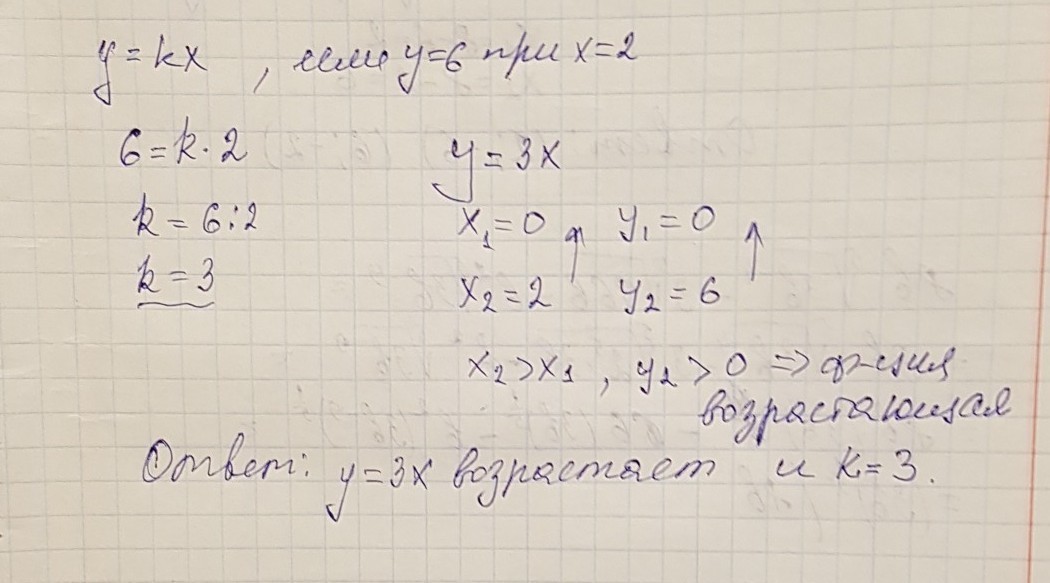 y = kx , если y=6 при x=2
6 = k · 2 y = 3x
k = 6:2 x₁=0 ↑ y₁=0 ↑
k = 3 x₂=2 y₂=6
x₂>x₁ , y₂ > 0 => ф-ция
возрастающая
Ответ: y=3x возрастает и k=3.